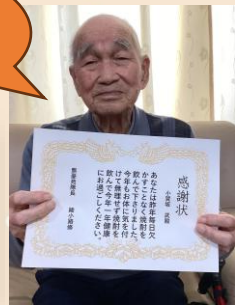 感謝状
あなたは昨年毎日欠
かすことなく焼酎を
飲んで下さりました。
今年もお体に気を付
けて無理せず焼酎を
飲んで今年一年健康
にお過ごしください。